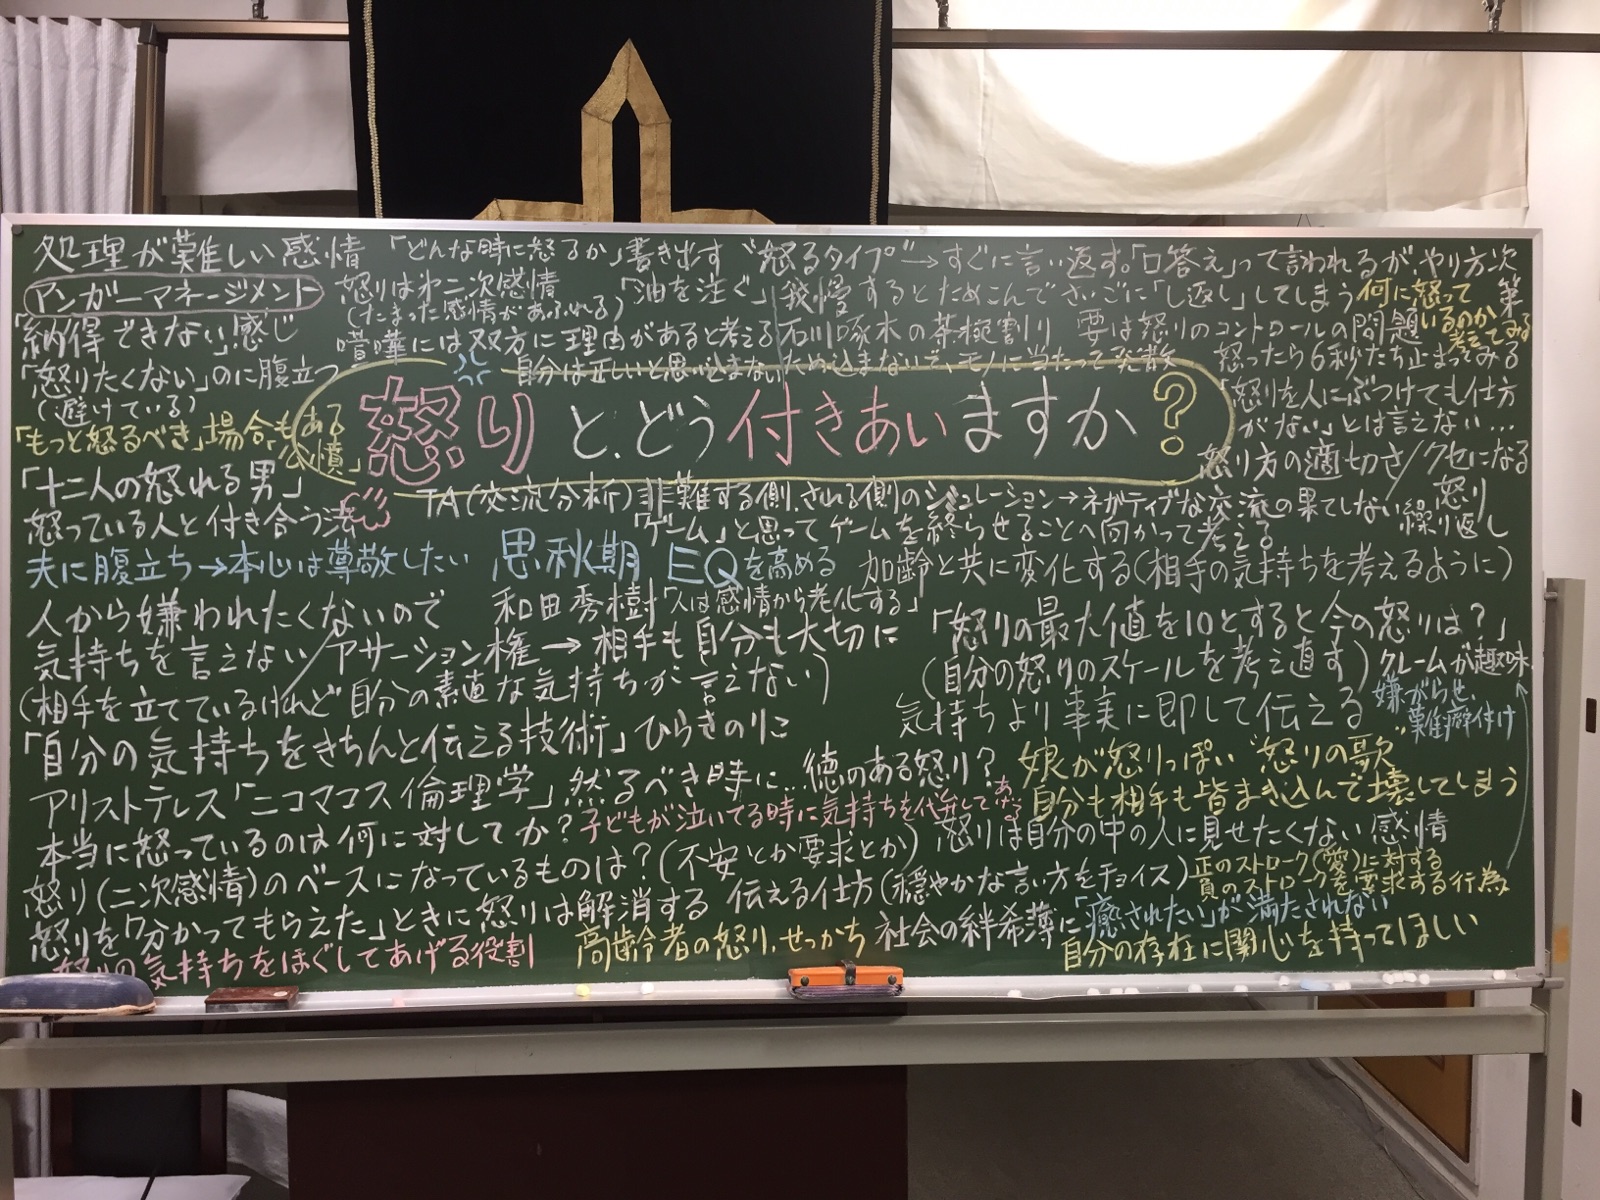 処理が難しい感情 「どんな時に怒るか」書き出す "怒るタイプ"→すぐに言い返す。「口答え」って言われるが、やり方次第
アンガーマネージメント
怒りは第二次感情
(たまった感情があふれる)
「油を注ぐ」
我慢するとためこんでさいごに「し返し」してしまう
何に怒って
いるのか
考えてみる
「納得できない」感じ
喧嘩には双方に理由があると考える
石川啄木の茶碗割り 要は怒りのコントロールの問題
「怒りたくない」のに腹立つ
(避けている)
自分は正しいと思い込まない
ため込まないで、モノに当たって発散
怒ったら6秒たち止まってみる
「怒りを人にぶつけても仕方
がない」とは言えない…
「もっと怒るべき」場合もある
「公憤」
怒りと、どう付きあいますか?
怒り方の適切さ/クセになる
「十二人の怒れる男」
怒っている人と付き合う法
TA(交流分析)非難する側、される側のシミュレーション→ネガティブな交流の果てしない繰り返し
怒り
「ゲーム」と思ってゲームを終らせることへ向かって考える
夫に腹立ち→本心は尊敬したい
思秋期 EQを高める
加齢と共に変化する(相手の気持ちを考えるように)
和田秀樹「人は感情から老化する」
人から嫌われたくないので
気持ちを言えない/アサーション権→相手も自分も大切に
(相手を立てているけれど自分の素直な気持ちが言えない)
「怒りの最大値を10とすると今の怒りは?」
(自分の怒りのスケールを考え直す)
クレームが趣味
嫌がらせ、
難癖付け
気持ちより事実に即して伝える
「自分の気持ちをきちんと伝える技術」ひらきのりこ
アリストテレス「ニコマコス倫理学」然るべき時に…徳のある怒り?
娘が怒りっぽい"怒りの歌"
自分も相手も皆まき込んで壊してしまう
本当に怒っているのは何に対してか?
子どもが泣いてる時に気持ちを代弁してあげる
怒りは自分の中の人に見せたくない感情
怒り(二次感情)のベースになっているものは?(不安とか要求とか)
伝える仕方(穏やかな言い方をチョイス)
正のストローク(愛)に対する
負のストロークを要求する行為
怒りを「分かってもらえた」ときに怒りは解消する
社会の絆希薄に
「癒されたい」が満たされない
怒りの気持ちをほぐしてあげる役割
高齢者の怒り、せっかち
自分の存在に関心を持ってほしい